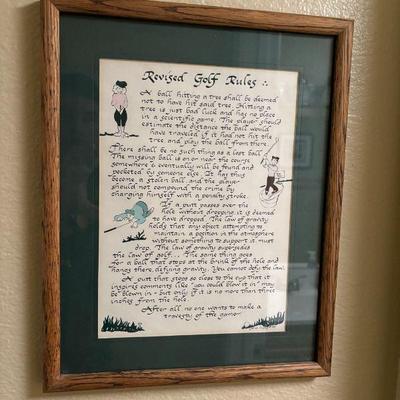 Revised Golf Rules:
A ball hitting a tree shall be deemed
not to have hit said tree. Hitting a
tree is just bad luck and has no place
in a scientific game. The player should
estimate the distance the ball would
have traveled if it had not hit the
tree and play the ball from there.
There shall be no such thing as a lost ball.
The missing ball is on or near the course
somewhere & eventually will be found and
pocketed by someone else. It has thus
become a stolen ball and the player
should not compound the crime by
charging himself with a penalty stroke.
If a putt passes over the
hole without dropping it is deemed
to have dropped. The law of gravity
holds that any object attempting to
maintain a position in the atmosphere
without something to support it must
drop. The law of gravity supersedes
the law of golf... The same thing goes
for a ball that stops at the brink of the hole and
hangs there, defying gravity. You cannot defy the law.
A putt that stops so close to the cup that it
inspires comments like "you could blow it in" may
be blown in - but only if it is no more than three
inches from the hole.
After all no one wants to make a
travesty of the game.